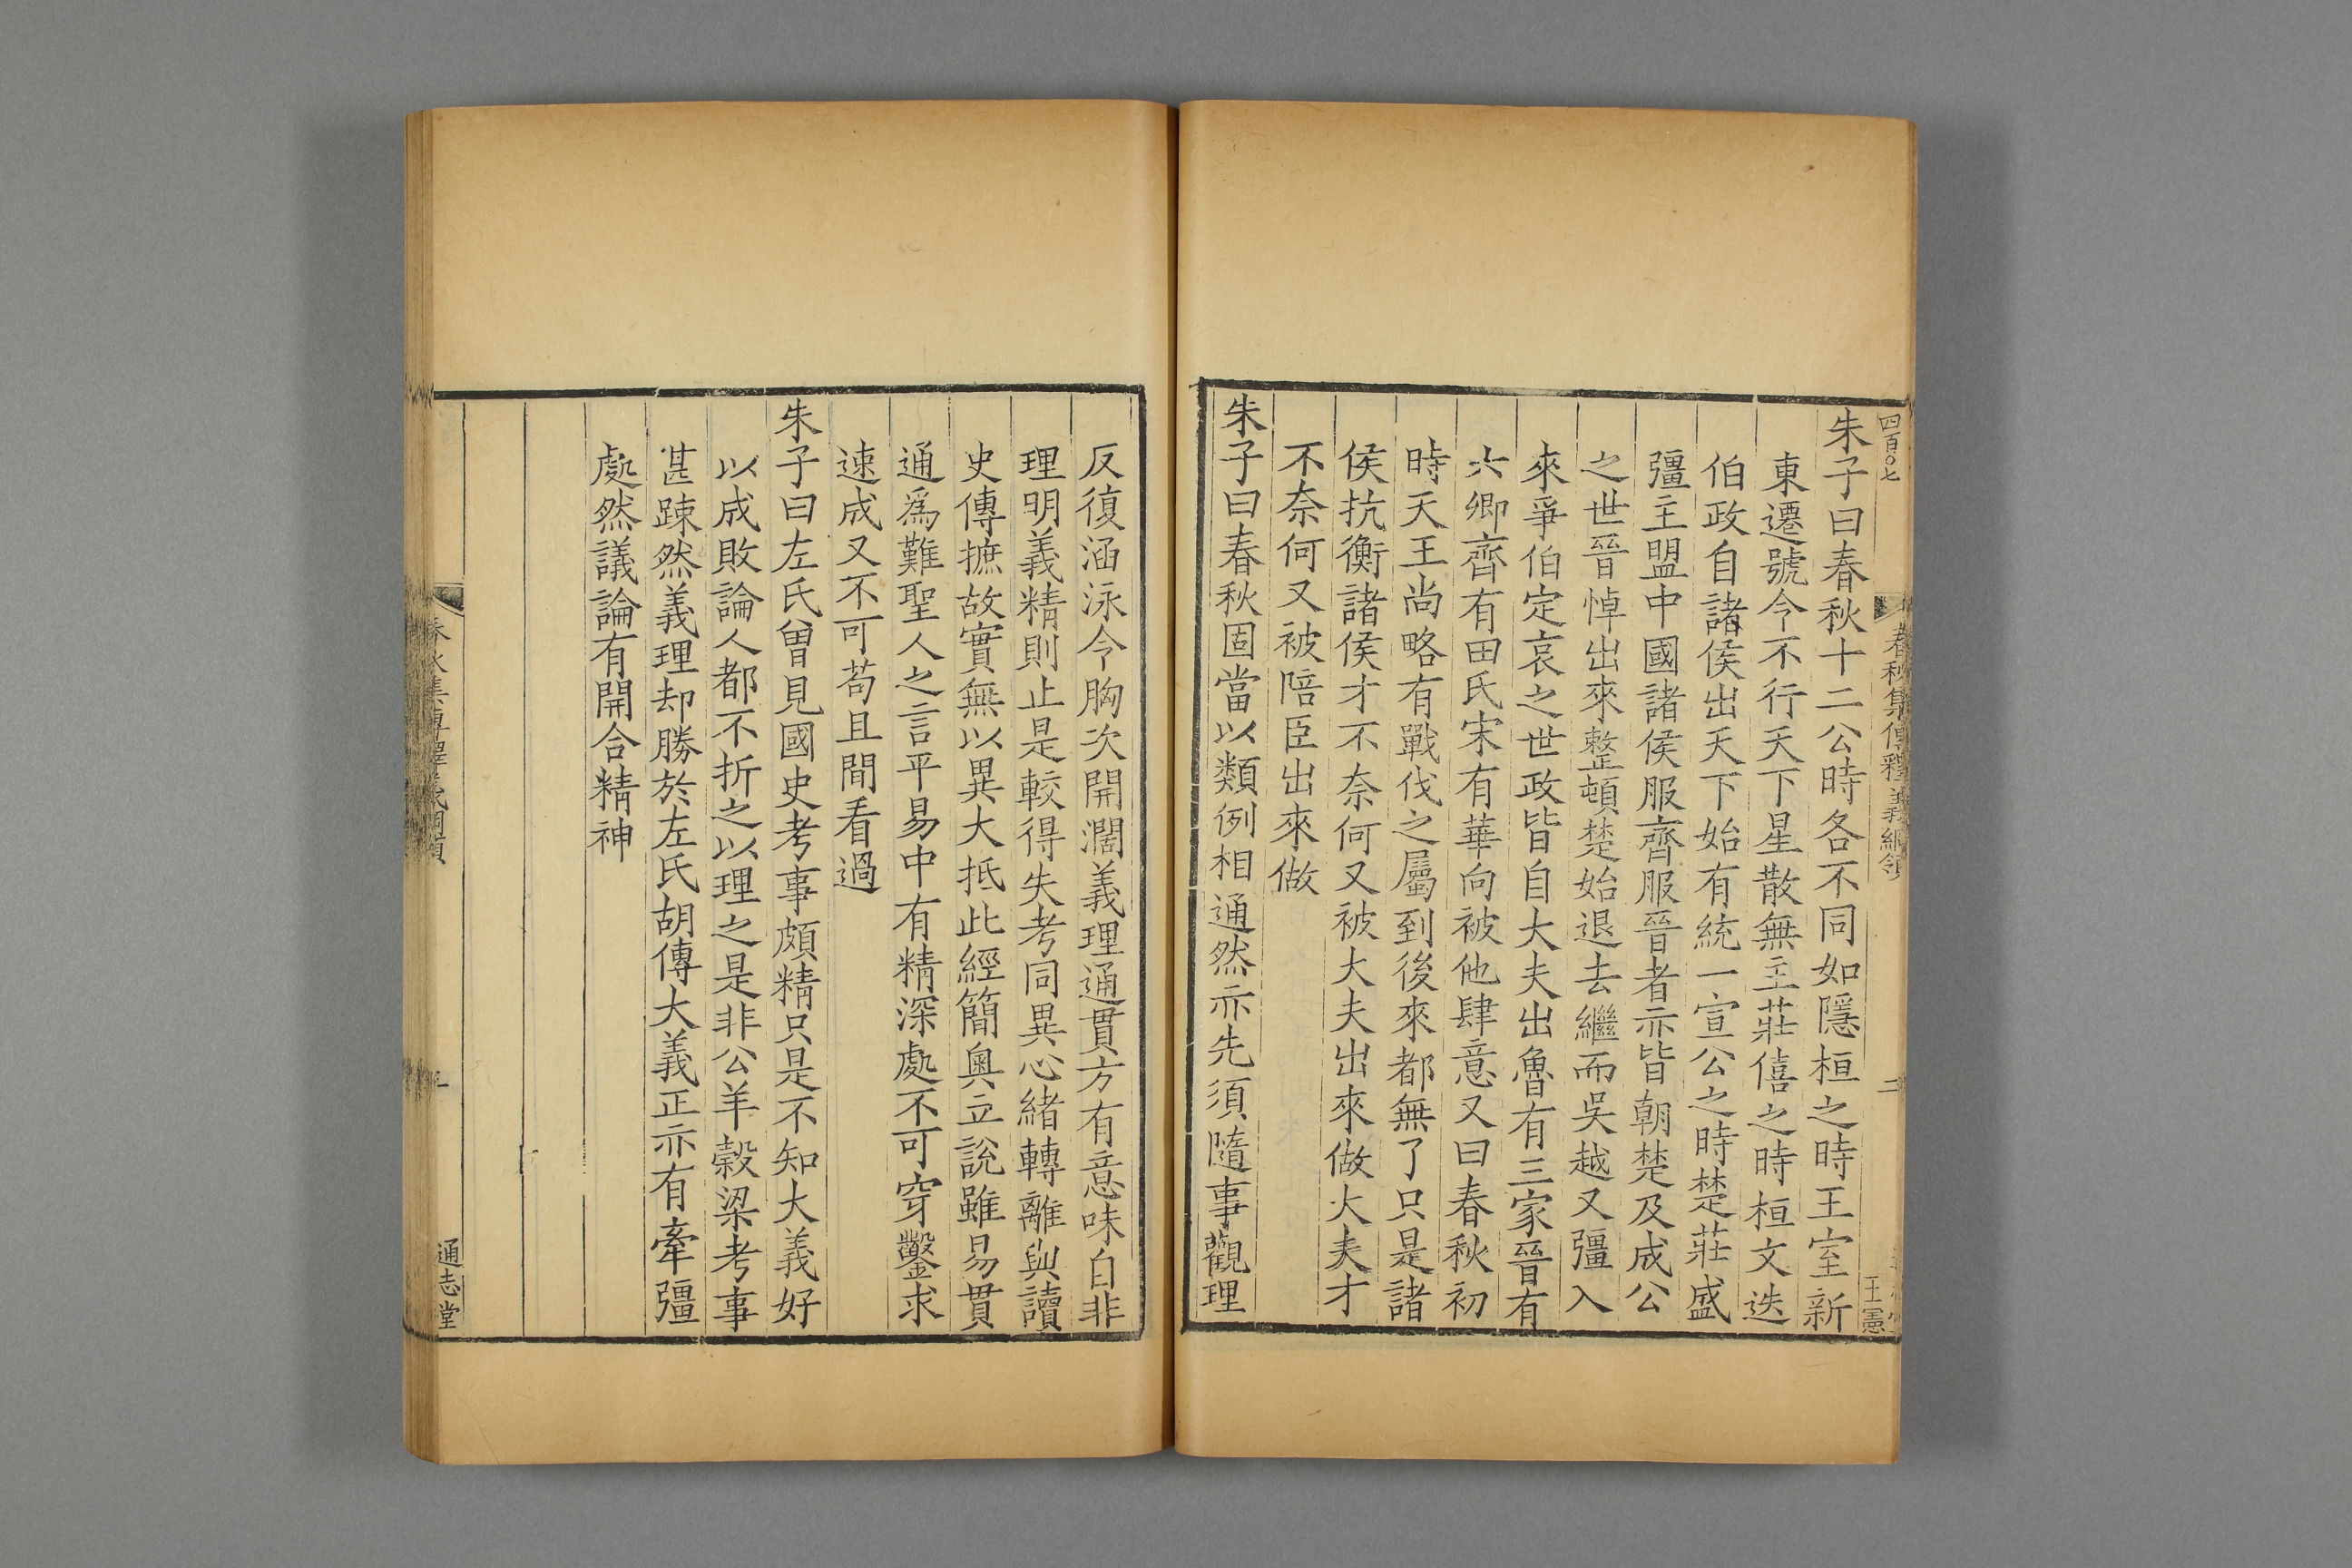 四百〇七
春秋集傳釋義綱領
二
王憲
朱子曰春秋十二公時各不同如隱桓之時王室新
東遷號令不行天下星散無主莊僖之時桓文迭
伯政自諸侯出天下始有統一宣公之時楚莊盛
彊主盟中國諸侯服齊服晉者亦皆朝楚及成公
之世晉悼出來整頓楚始退去繼而吳越又彊入
來爭伯定哀之世政皆自大夫出魯有三家晉有
六卿齊有田氏宋有華向被他肆意又曰春秋初
時天王尚略有戰伐之屬到後來都無了只是諸
侯抗衡諸侯才不奈何又被大夫出來做大夫才
不奈何又被陪臣出來做
朱子曰春秋固當以類例相通然亦先須隨事觀理
反復涵泳令胸次開濶義理通貫方有意味自非
理明義精則止是較得失考同異心緒轉離與讀
史傳摭故實無以異大抵此經簡奥立說雖易貫
通爲難聖人之言平易中有精深處不可穿鑿求
速成又不可苟且閒看過
朱子曰左氏曾見國史考事頗精只是不知大義好
以成敗論人都不折之以理之是非公羊榖梁考事
甚踈然義理却勝於左氏胡傳大義正亦有牽彊
處然議論有開合精神
通志堂